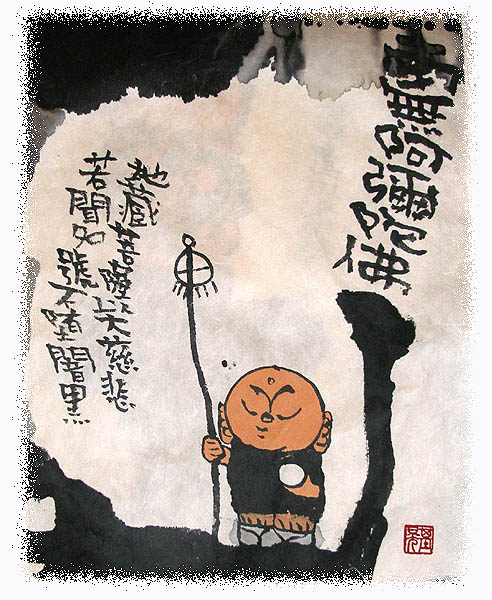 南無阿彌陀佛
地藏菩薩大慈悲
若聞名號不墮闇黑